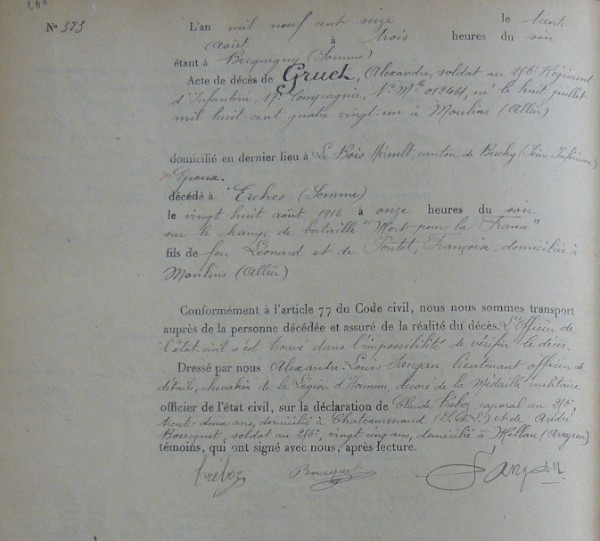 N° 383
L'an mil neuf cent seize le trente
Août à trois heures du soir
étant à Becquigny (Somme)
Acte de décès de Gruch, Alexandre, soldat au 216e Régiment
d'Infanterie, 17e Compagnie, N° Mle 012461, né le huit juillet
mil huit cent quatre vingt-un à Moulins (Allier)
domicilié en dernier lieu à Le Bois Hérault, canton de Buchy (Seine Inférieure)
Epoux.
décédé à Erches (Somme)
le vingt huit août 1916 à onze heures du soir
sur le champ de bataille "Mort pour la France"
fils de feu Léonard et de Françoise, domiciliée à
Moulins (Allier)
Conformément à l'article 77 du Code civil, nous nous sommes transport
auprès de la personne décédée et assuré de la réalité du décès. L'Officier de
l'état civil s'est trouvé dans l'impossibilité de vérifier le décès.
Dressé par nous Alexandre Louis Sangan, lieutenant officier de
détails, chevalier de la Légion d'Honneur, décoré de la Médaille militaire
officier de l'état civil, sur la déclaration de Claude caporal au 216e,
trente deux ans, domicilié à Chateaurenaud (S.&L.) et de André
Bousquet, soldat au 216e, vingt cinq ans, domicilié à Millau (Aveyron)
témoins, qui ont signé avec nous, après lecture.
Bousquet Sangan